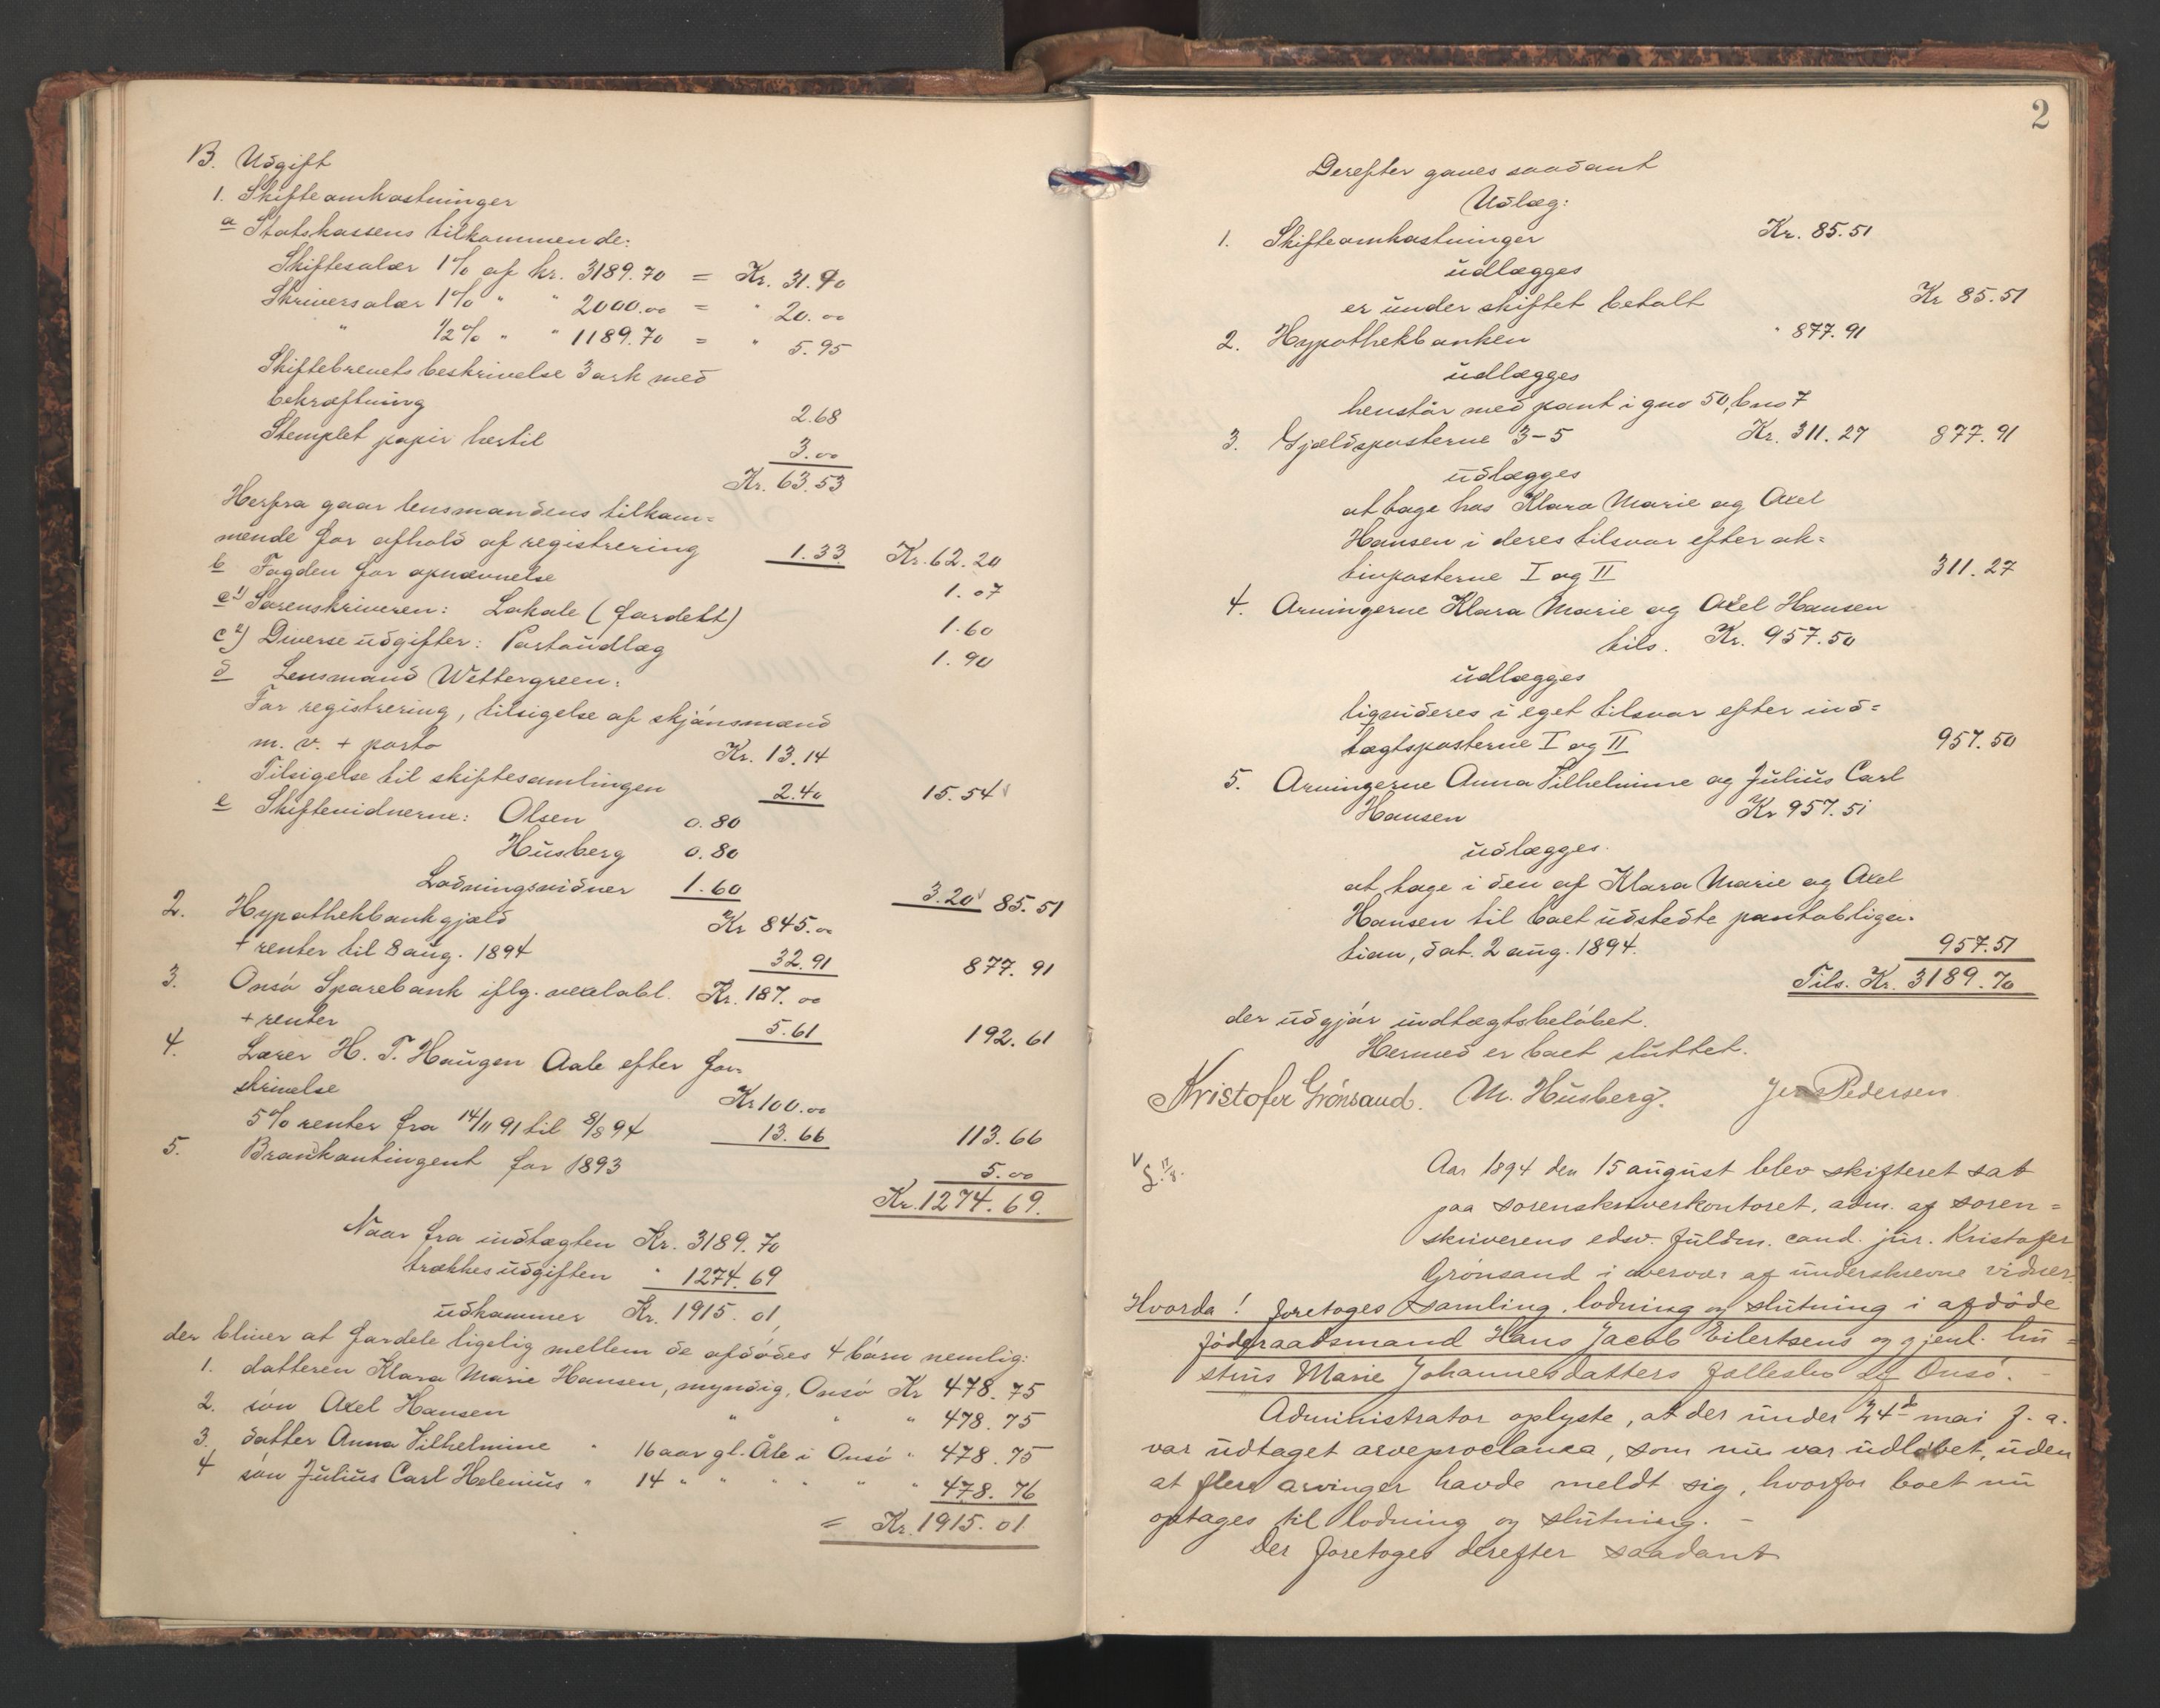 B. Udgift
1. Skifteomkostninger
a Statskassens tilkommende:
Skiftesalær 1% af kr. 3189.70 = Kr. 31.90
Skriversalær 1% " " 2000.00 = " 20.00
" 1/2% " " 1189.70 = " 5.95
Skiftebrevets beskrivelse 3 ark med
bekræftning 2.68
Stemplet papir hertil 3.00
Kr. 63.53
Herfra gaar lensmandens tilkom=
mende for afhold af registrering 1.33 Kr. 62.20
b Fogden for opnævnelse 1.07
c1) Sorenskriveren: Lokale (fordelt) 1.60
c2) Diverse udgifter: Portoudlæg 1.90
d Lensmand Wettergreen:
For registrering, tilsigelse af skjønsmænd
m. v. + porto Kr. 13.14
Tilsigelse til skiftesamlingen 2.40 15.54
e Skiftevidnerne: Olsen 0.80
Husberg 0.80
Lodningsvidner 1.60 3.20 85.51
2. Hypothekbankgjæld Kr 845.00
+ renter til 8 aug. 1894 32.91 877.91
3. Onsø Sparebank iflg. vexelobl. Kr. 187.00
+ renter 5.61 192.61
4. Lærer H. T. Haugen Aale efter for-
skrivelse Kr 100.00
5% renter fra 14/11 91 til 8/8 94 13.66 113.66
5. Brandkontingent for 1893 5.00
Kr. 1274.69.
Naar fra indtægten Kr. 3189.70
trækkes udgiften " 1274.69
udkommer Kr. 1915.01,
der bliver at fordele ligelig mellem de afdødes 4 børn nemlig:
1. datteren Klara Marie Hansen, myndig, Onsø Kr 478.75
2. søn Axel Hansen " " " 478.75
3. datter Anna Vilhelmine " 16 aar gl. Åle i Onsø " 478.75
4 søn Julius Carl Helenius " 14 " " " " " 478.76
= Kr. 1915.01
2
Derefter gaves saadant
Udlæg:
1. Skifteomkostninger Kr. 85.51
udlægges
er under skiftet betalt Kr 85.51
2. Hypothekbanken " 877.91
udlægges
henstår med pant i gno 50, bno 7 877.91
3. Gjældsposterne 3-5 Kr. 311.27
udlægges
at tage hos Klara Marie og Axel
Hansen i deres tilsvar efter ak=
tivposterne I og II 311.27
4. Arvingerne Klara Marie og Axel Hansen
tils. Kr. 957.50
udlægges
liqvideres i eget tilsvar efter ind=
tægtsposterne I og II 957.50
5. Arvingerne Anna Vilhelmine og Julius Carl
Hansen Kr 957.51
udlægges.
at tage i den af Klara Marie og Axel
Hansen til boet udstedte pantobliga-
tion, dat. 2 aug. 1894. 957.51
Tils. Kr. 3189.70
der udgjør indtægtsbeløbet.
Hermed er boet sluttet.
Kristofer Grønsand. M. Husberg. Jens Pedersen
Aar 1894 den 15 august blev skifteret sat
paa sorenskriverkontoret, adm. af soren=
skriverens edsv. fuldm. cand. jur. Kristofer
Grønsand i overvær af underskrevne vidner.
Hvorda! foretoges samling, lodning og slutning i afdøde
føderaadsmand Hans Jacob Eilertsens og gjenl. hu=
strus Marie Johannesdatters fællesbo af Onsø. -
Administrator oplyste, at der under 24de mai f. a.
var udtaget arveproclama, som nu var udløbet, uden
at flere arvinger havde meldt sig, hvorfor boet nu
optages til lodning og slutning. -
Der foretoges derefter saadant